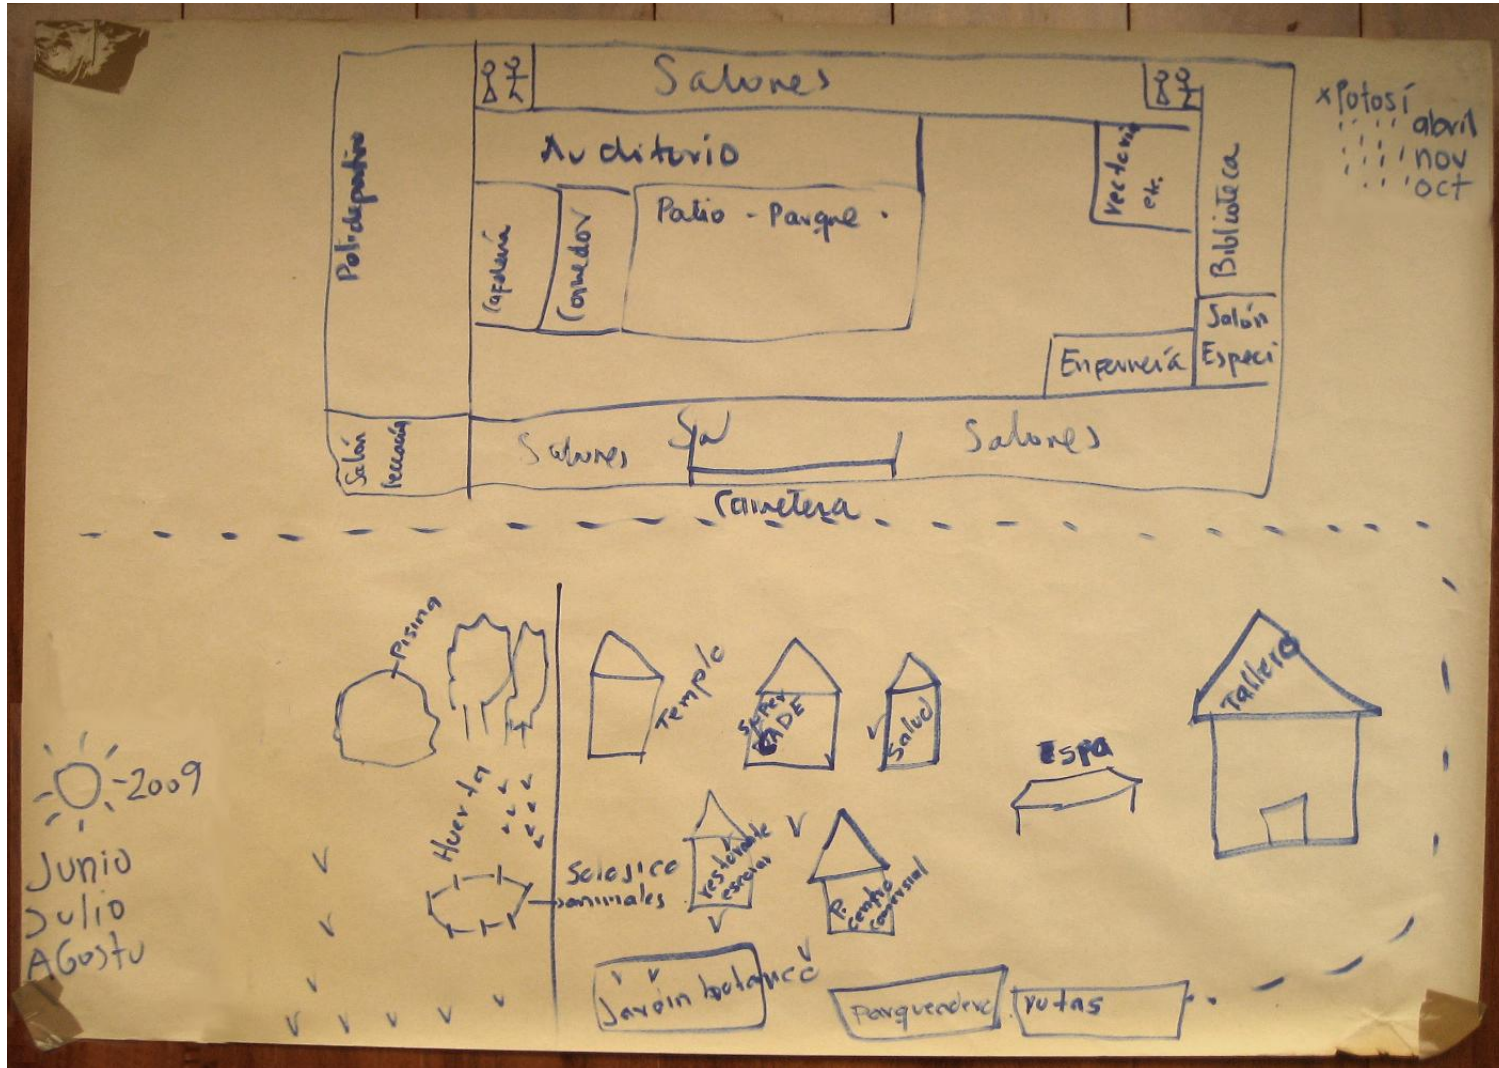 Salones
xPotosí
abril
nov
oct
Auditorio
Polideportivo
rectoria
etc.
Biblioteca
Cafetería
Comedor
Patio - Parque.
Salón
Especi
Enfermería
Salón
Salones
Salones
Carretera
Pisina
Templo
CADE
Salud
Espa
Tallero
-2009
Junio
Julio
AGosto
Huerta
Solojico
animales
restorante
escolar
P.
centro
comersial
Jardin botanico
Parqueadero
rutas